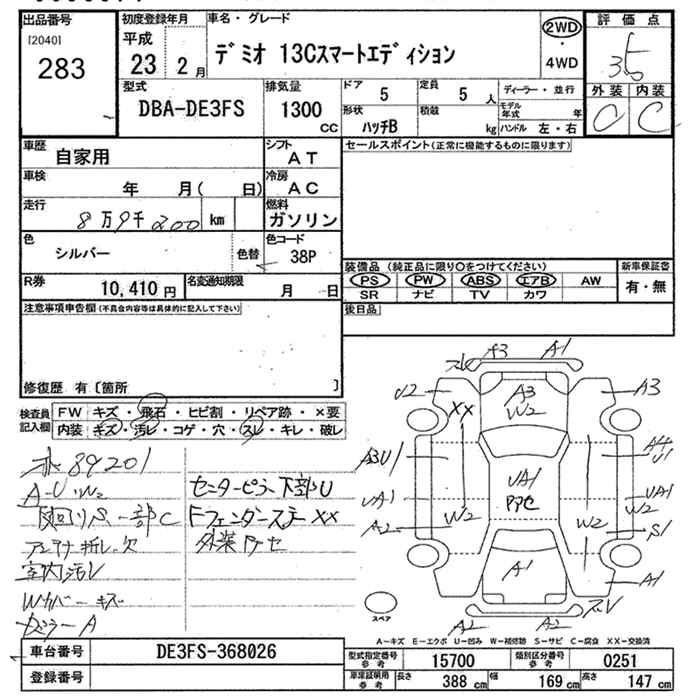 出品番号
[2040]
283
初度登録年月
平成
23 2月
車名・グレード
デミオ 13Cスマートエディション
2WD
・
4WD
評価点
3.5
外装 内装
C C
型式
DBA-DE3FS
排気量
1300
cc
ドア
5
定員
5 人
ディーラー・並行
形状
ハッチB
積載
kg
モデル年式 年
ハンドル 左・右
車歴
自家用
シフト
AT
車検
年 月( 日)
冷房
AC
走行
8万9千200 km
燃料
ガソリン
色
シルバー
色替
色コード
38P
R券
10,410円
名変通知期限
月 日
セールスポイント(正常に機能するものに限ります)
装備品(純正品に限り○をつけてください)
PS PW ABS エアB AW
SR ナビ TV カワ
新車保証書
有・無
後日品
注意事項申告欄(不具合内容等は具体的に記入して下さい)
修復歴 有〔箇所 〕
検査員
記入欄
FW キズ・飛石・ヒビ割・リペア跡・×要
内装 キズ・汚レ・コゲ・穴・スレ・キレ・破レ
89201
A-U.W2
下回りS.一部C
アンテナ折レ欠
室内汚レ
Wカバーキズ
A
センターピラー下部U
FフェンダーステーXX
外装
A3 A1
U2 A3
A3
W2
XX
A3U1
UA1
A2
W2
UA1
W2
A4
U1
UA1
S1
A1
A1
A2 A2
スペア
A-キズ E-エクボ U-凹み W-補修跡 S-サビ C-腐食 XX-交換済
車台番号
DE3FS-368026
登録番号
型式指定番号
参考
15700
類別区分番号
参考
0251
車検証明用
参考
長さ 388 cm
幅 169 cm
高さ 147 cm